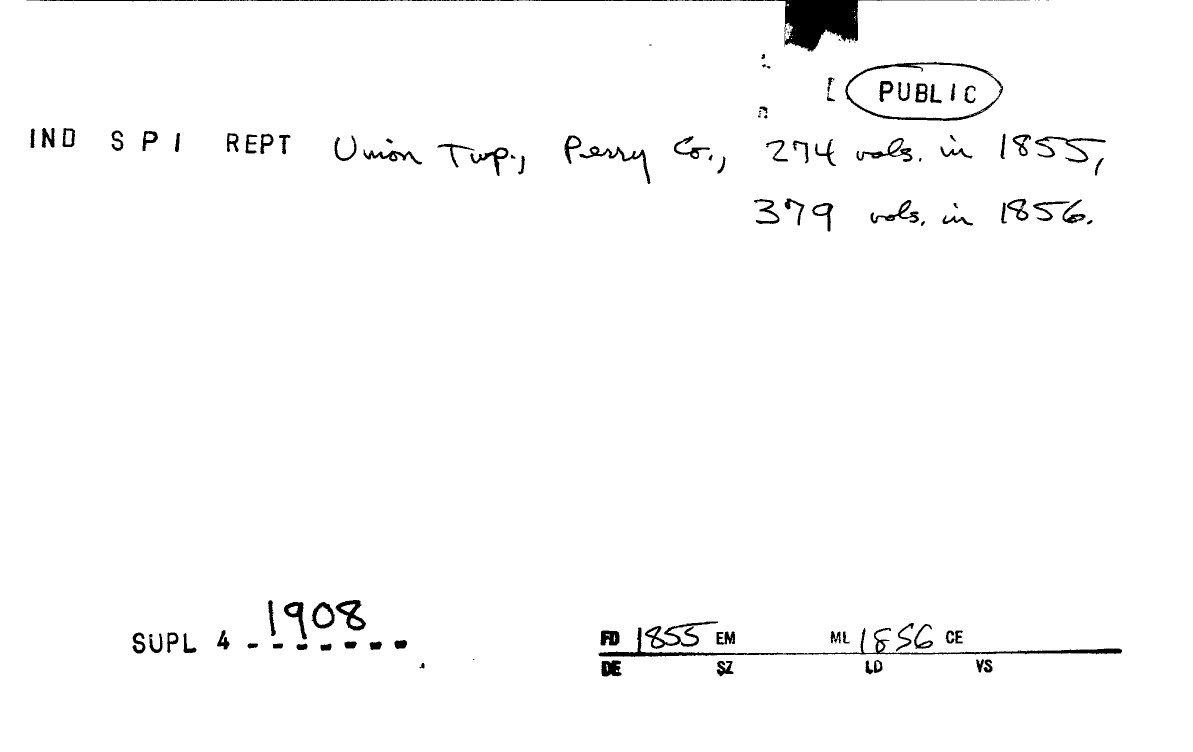 PUBLIC
IND S P I REPT Union Twp., Perry Co., 274 vols. in 1855,
379 vols. in 1856.
SUPL 4 1908
FD 1855 EM ML 1856 CE
DE SZ LD VS